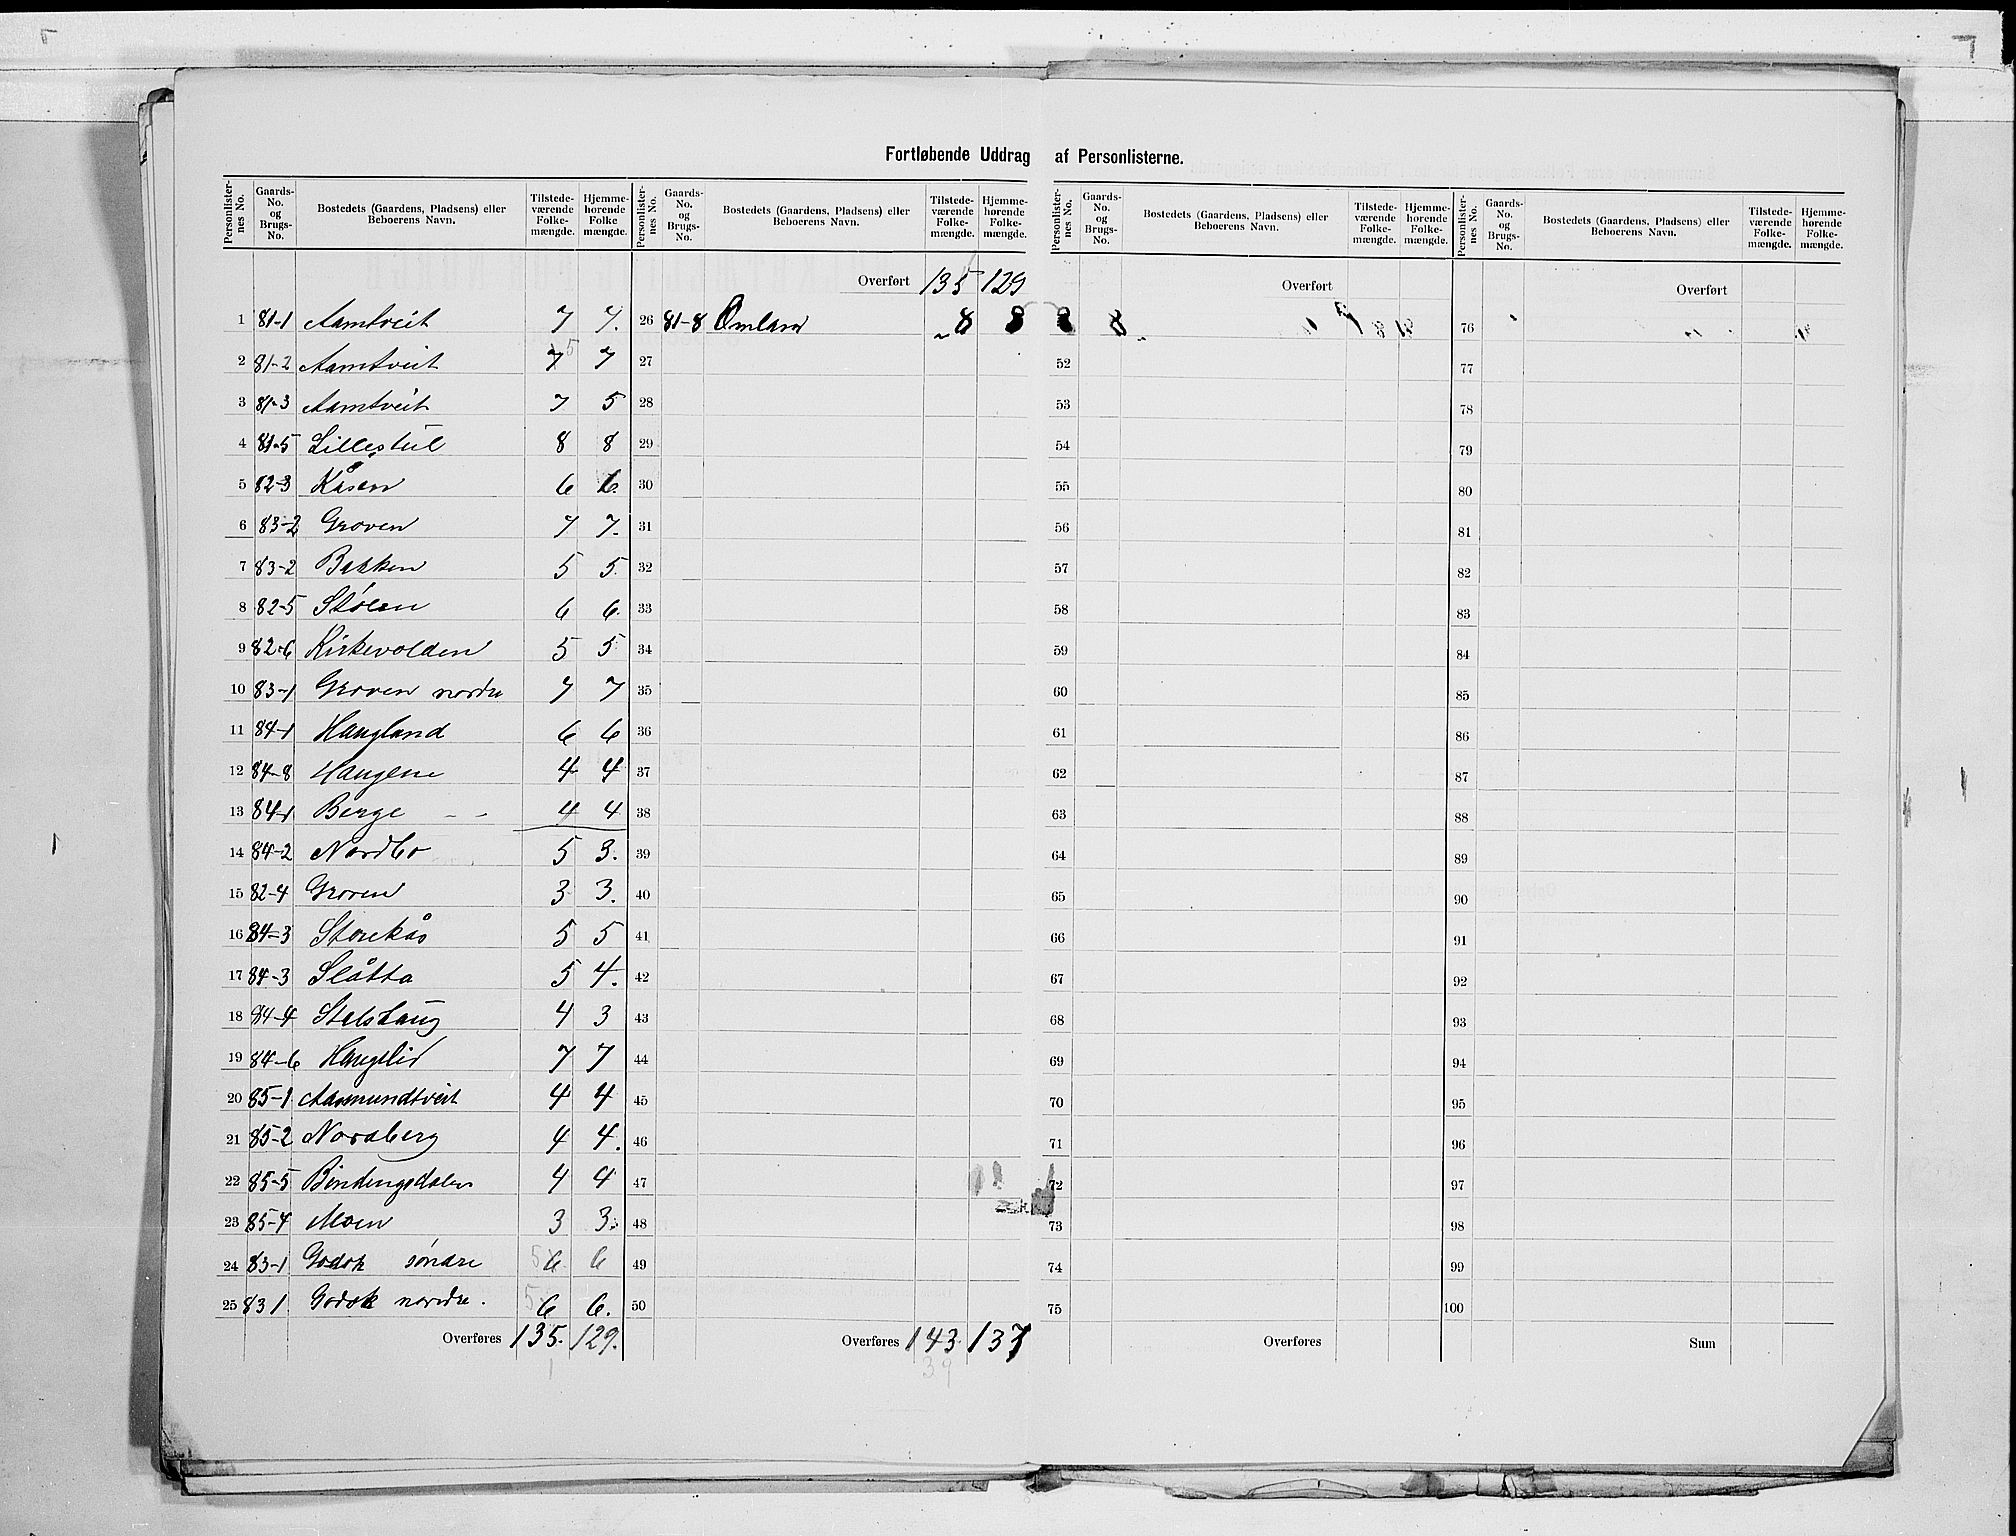 Fortløbende Uddrag af Personlisterne.
Personlisternes No. Gaards-No. og Brugs-No. Bostedets (Gaardens, Pladsens) eller Beboerens Navn. Tilstedeværende Folkemængde. Hjemmehørende Folkemængde.
1 81-1 Aamtveit 7 7.
2 81-2 Aamtveit 7 5 7
3 81-3 Aamtveit 7 5
4 81-5 Lillestul 8 8
5 82-3 Kåsen 6 6.
6 83-2 Groven 7 7.
7 83-2 Bakken 5 5.
8 82-5 Stølen 6 6.
9 82-6 Kirkevolden 5 5
10 83-1 Groven nordre 7 7
11 84-1 Haugland 6 6
12 84-8 Haugene 4 4
13 84-1 Berge - - 4 4
14 84-2 Nordbo 5 3.
15 82-4 Groven 3 3.
16 84-3 Storekås 5 5
17 84-3 Slåtta 5 4.
18 84-4 Stelshaug 4 3
19 84-6 Haugelid 7 7
20 85-1 Aasmundtveit 4 4
21 85-2 Nordberg 4 4.
22 85-5 Bindingsdalen 4 4
23 85-4 Moen 3 3.
24 83-1 Godok søndre 5 6 6
25 83 1 Godok nordre. 5 6 6.
Overføres 135. 129.
1
Personlisternes No. Gaards-No. og Brugs-No. Bostedets (Gaardens, Pladsens) eller Beboerens Navn. Tilstedeværende Folkemængde. Hjemmehørende Folkemængde.
Overført 135 129
26 81-8 Omland 8 8
27
28
29
30
31
32
33
34
35
36
37
38
39
40
41
42
43
44
45
46
47
48
49
50
Overføres 143. 137
39
Personlisternes No. Gaards-No. og Brugs-No. Bostedets (Gaardens, Pladsens) eller Beboerens Navn. Tilstedeværende Folkemængde. Hjemmehørende Folkemængde.
Overført
52
53
54
55
56
57
58
59
60
61
62
63
64
65
66
67
68
69
70
71
72
73
74
75
Overføres
Personlisternes No. Gaards-No. og Brugs-No. Bostedets (Gaardens, Pladsens) eller Beboerens Navn. Tilstedeværende Folkemængde. Hjemmehørende Folkemængde.
Overført
76
77
78
79
80
81
82
83
84
85
86
87
88
89
90
91
92
93
94
95
96
97
98
99
100
Sum